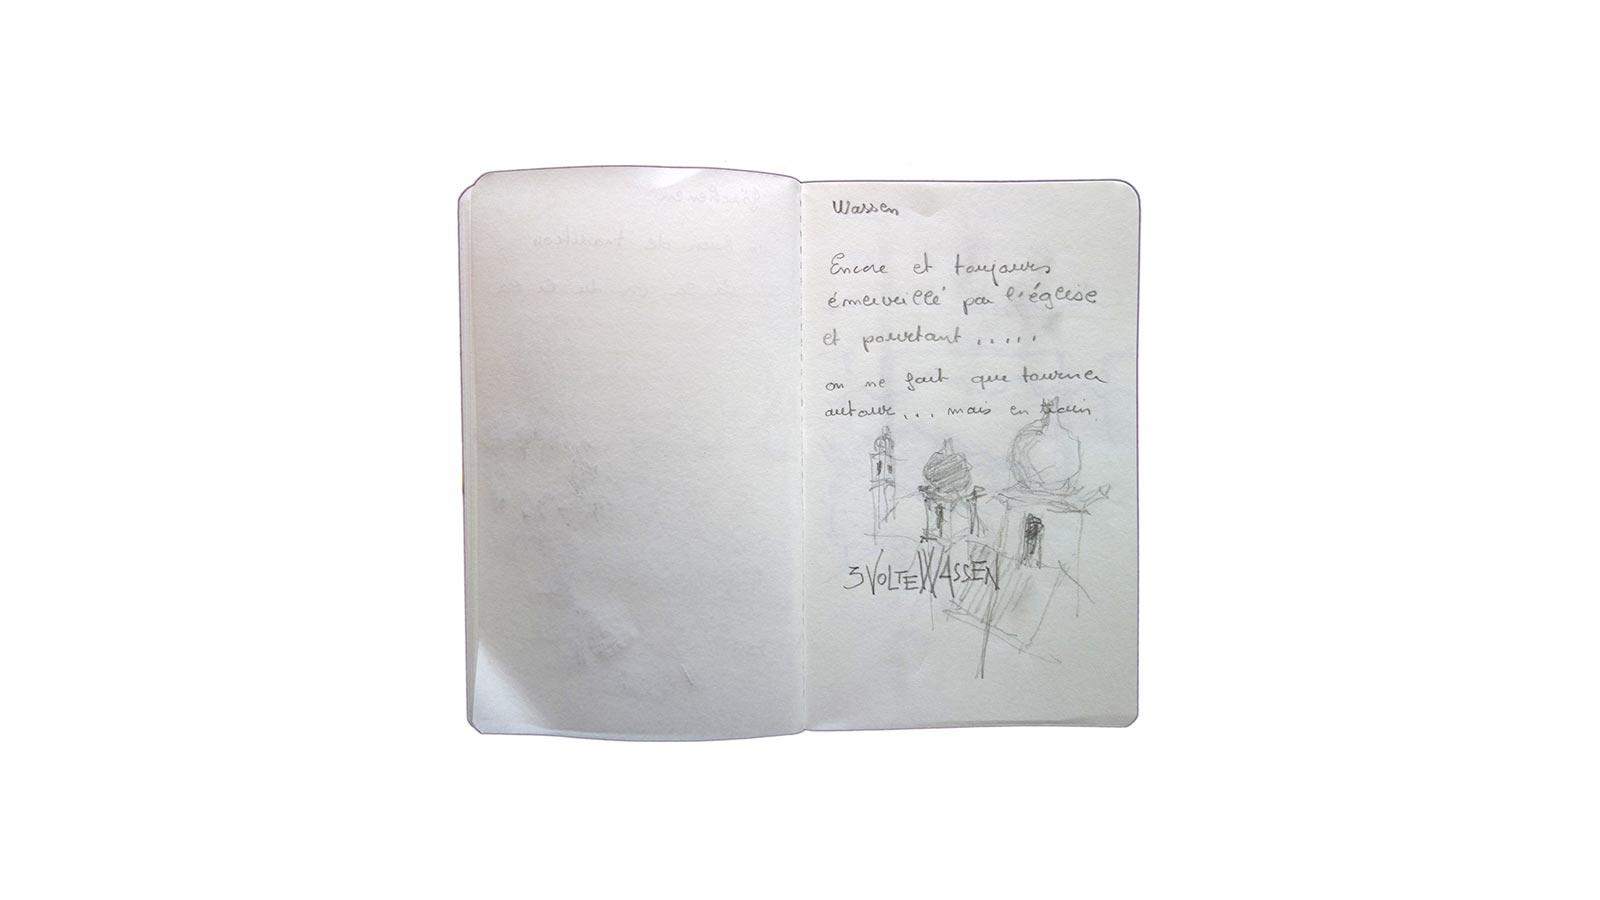 Wassen
Encore et toujours
émerveillé par l'église
et pourtant .....
on ne fait que tourner
autour... mais en train.
3VOLTEWASSEN